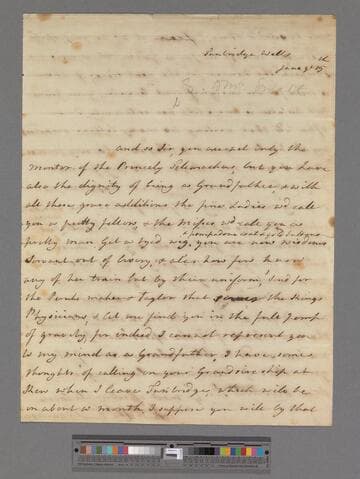 Tunbridge Wells
June 9th
and so Sir you are not only the
mentor of the Princely Telemachus, but you have
also the dignity of being a Grandfather, & with
all these grave additions the fine Ladies wd call
you a pretty fellow, & the Misses wd call you a
pretty man. Get a tyed wig, you are now Wisdoms
Servant out of livery, & alas how few know
any of her train but by their uniform! Send for
the Taylor that the Kings
Physicians, & let me find you in the full pomp
of gravity, for indeed I cannot represent you
to my mind as a Grandfather. I have some
thoughts of calling on your Grandsireship at
Kew when I leave Tunbridge, which will be
in about a month, I suppose you will by that